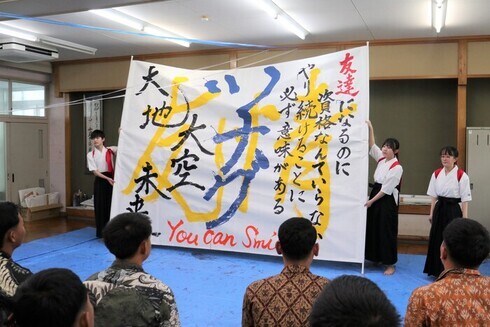 友達になるのに
資格なんていらない
やり続けることに
必ず意味がある
ツナグ
大空
大地
未来
You can Smi